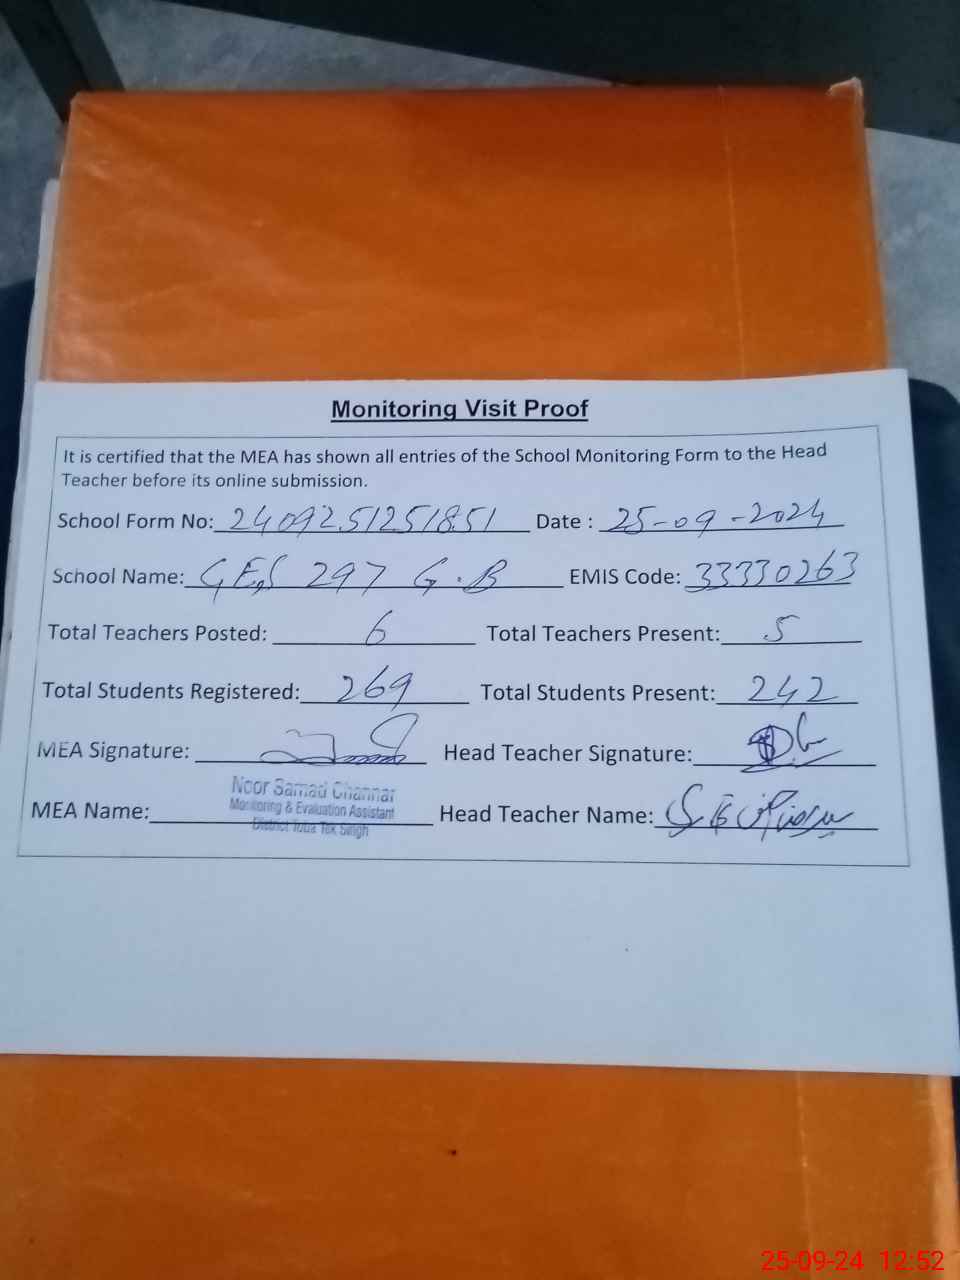 Monitoring Visit Proof
It is certified that the MEA has shown all entries of the School Monitoring Form to the Head
Teacher before its online submission.
School Form No: 2409251251851 Date : 25-09-2024
School Name: GES 297 G.B EMIS Code: 33330263
Total Teachers Posted: 6 Total Teachers Present: 5
Total Students Registered: 269 Total Students Present: 242
MEA Signature: Head Teacher Signature:
Noor Samad Channar
Monitoring & Evaluation Assistant
District Toba Tek Singh
MEA Name: Head Teacher Name:
25-09-24 12:52